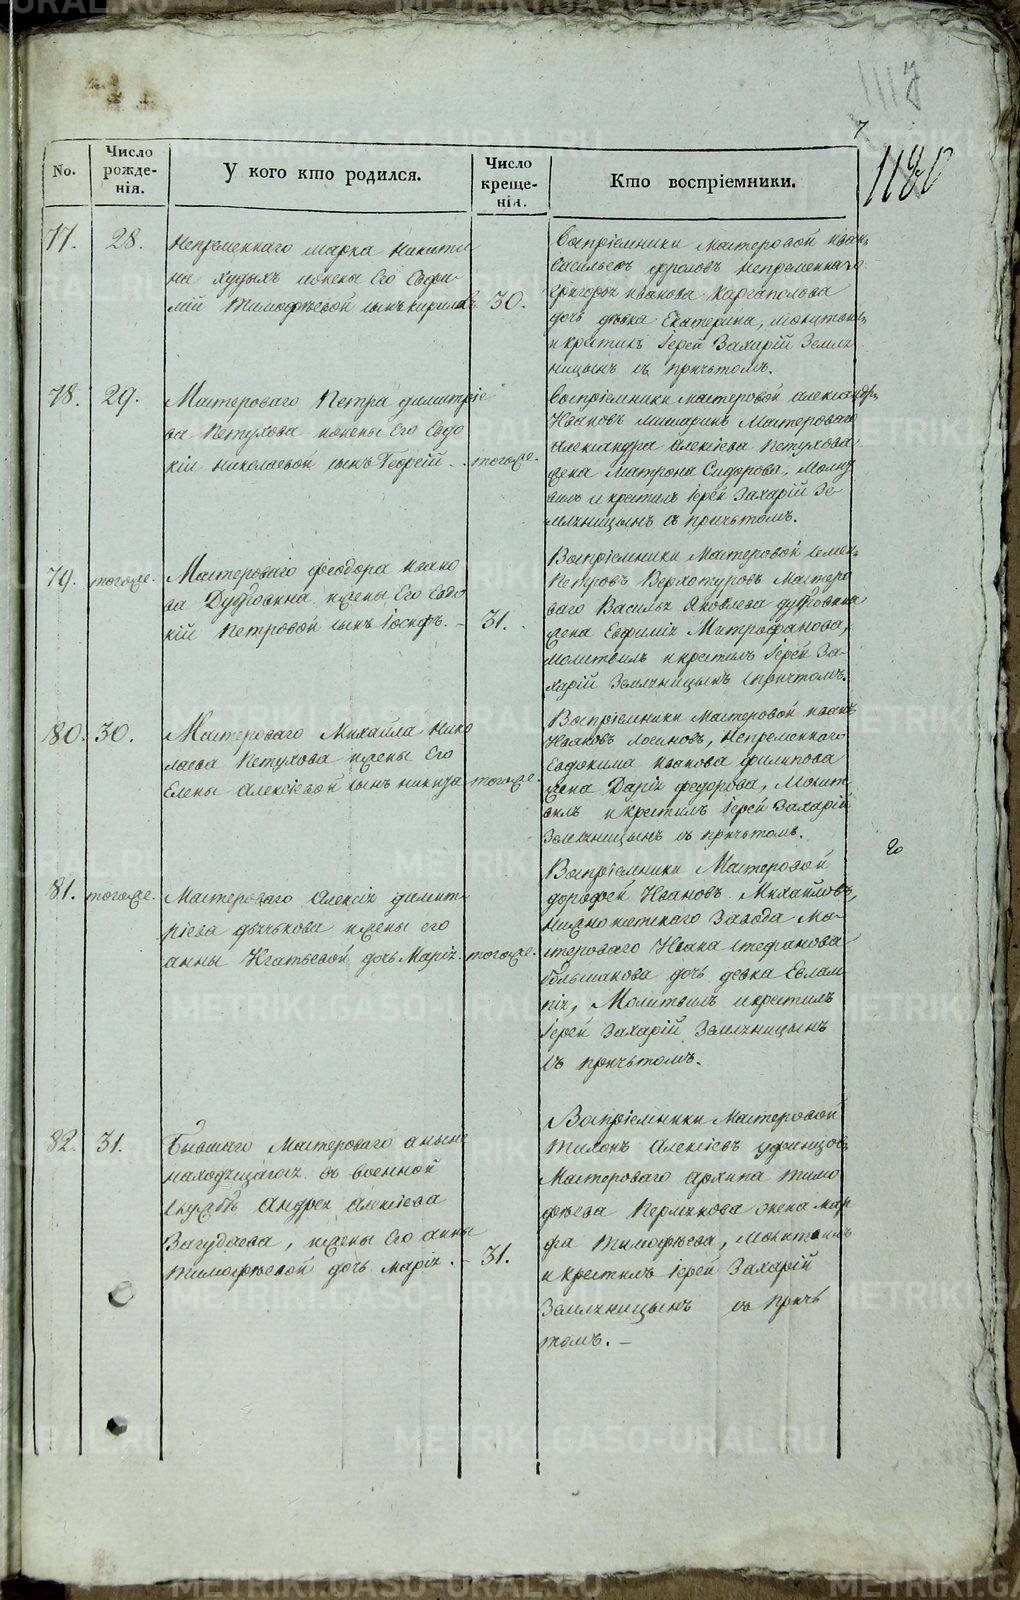 1117
7
1180
No.
Число рожде-нія.
У кого кто родился.
Число креще-нія.
Кто воспріемники.
77.
28.
Непременнаго Марка Никити
на Худыхъ и жены Его Евфи-
мій Тимофѣевой сынъ Кирилъ
30.
Воспріемники Мастеровой Иванъ
Васильевъ Фроловъ Непременнаго
Григорья Иванова Каргаполова
дочь дѣвка Екатерина, Молитвилъ
и крестилъ Іерей Захарій Земля
ницынъ съ причьтомъ.
78.
29.
Мастероваго Петра Димитріе
ва Петухова и жены Его Евдо
кіи Николаевой сынъ Георгій.
тогоже.
Воспріемники Мастеровой Александръ
Ивановъ Мастероваго
Александра Алексіева Петухова
жена Матрона Сидорова. Молит
вилъ и крестилъ Іерей Захарій Зе-
мляницынъ съ причьтомъ.
79.
тогоже.
Мастероваго Феодора Ивано
ва Дубровина и жены Его Евдо
кій Петровой сынъ Іосифъ.
31.
Воспріемники Мастеровой Семенъ
Петровъ Верхотуровъ Мастеро
ваго Василья Яковлева Дубровина
жена Евфимія Митрофанова,
молитвилъ и крестилъ Іерей За-
харій Земляницынъ с причтомъ.
80.
30.
Мастероваго Михайла Нико
лаева Петухова и жены Его
Елены Алексіевой сынъ Никита
тогоже.
Воспріемники Мастеровой Иванъ
Ивановъ Лосиновъ, Непременнаго
Евдокима Иванова Филипова
жена Дарія Федорова, Молит
вилъ и крестилъ Іерей Захарій
Земляницынъ съ причьтомъ.
81.
тогоже.
Мастероваго Алексія Димит
ріева Дѣячькова и жены его
Анны Игатьевой дочь Марія.
тогоже.
Воспріемники Мастеровой
Дорофей Ивановъ Михайловъ,
Завода Ма-
стероваго Ивана Стефанова
Большакова дочь девка Евлам
пія, Молитвилъ и крестилъ
Іерей Захарій Земляницынъ
съ причьтомъ.
82.
31.
Бывшаго Мастероваго а нынѣ
находящагося въ военной
службѣ Андрея Алексіева
Загудаева, и жены Его Анны
Тимофѣевой дочь Марія.
31.
Воспріемники Мастеровой
Тихонъ Алексіевъ
Мастероваго Архипа Тимо
фѣева Пермякова жена Мар
фа Тимофѣева, Молитвилъ
и крестилъ Іерей Захарій
Земляницынъ съ причь
томъ.—
METRIKI.GASO-URAL.RU